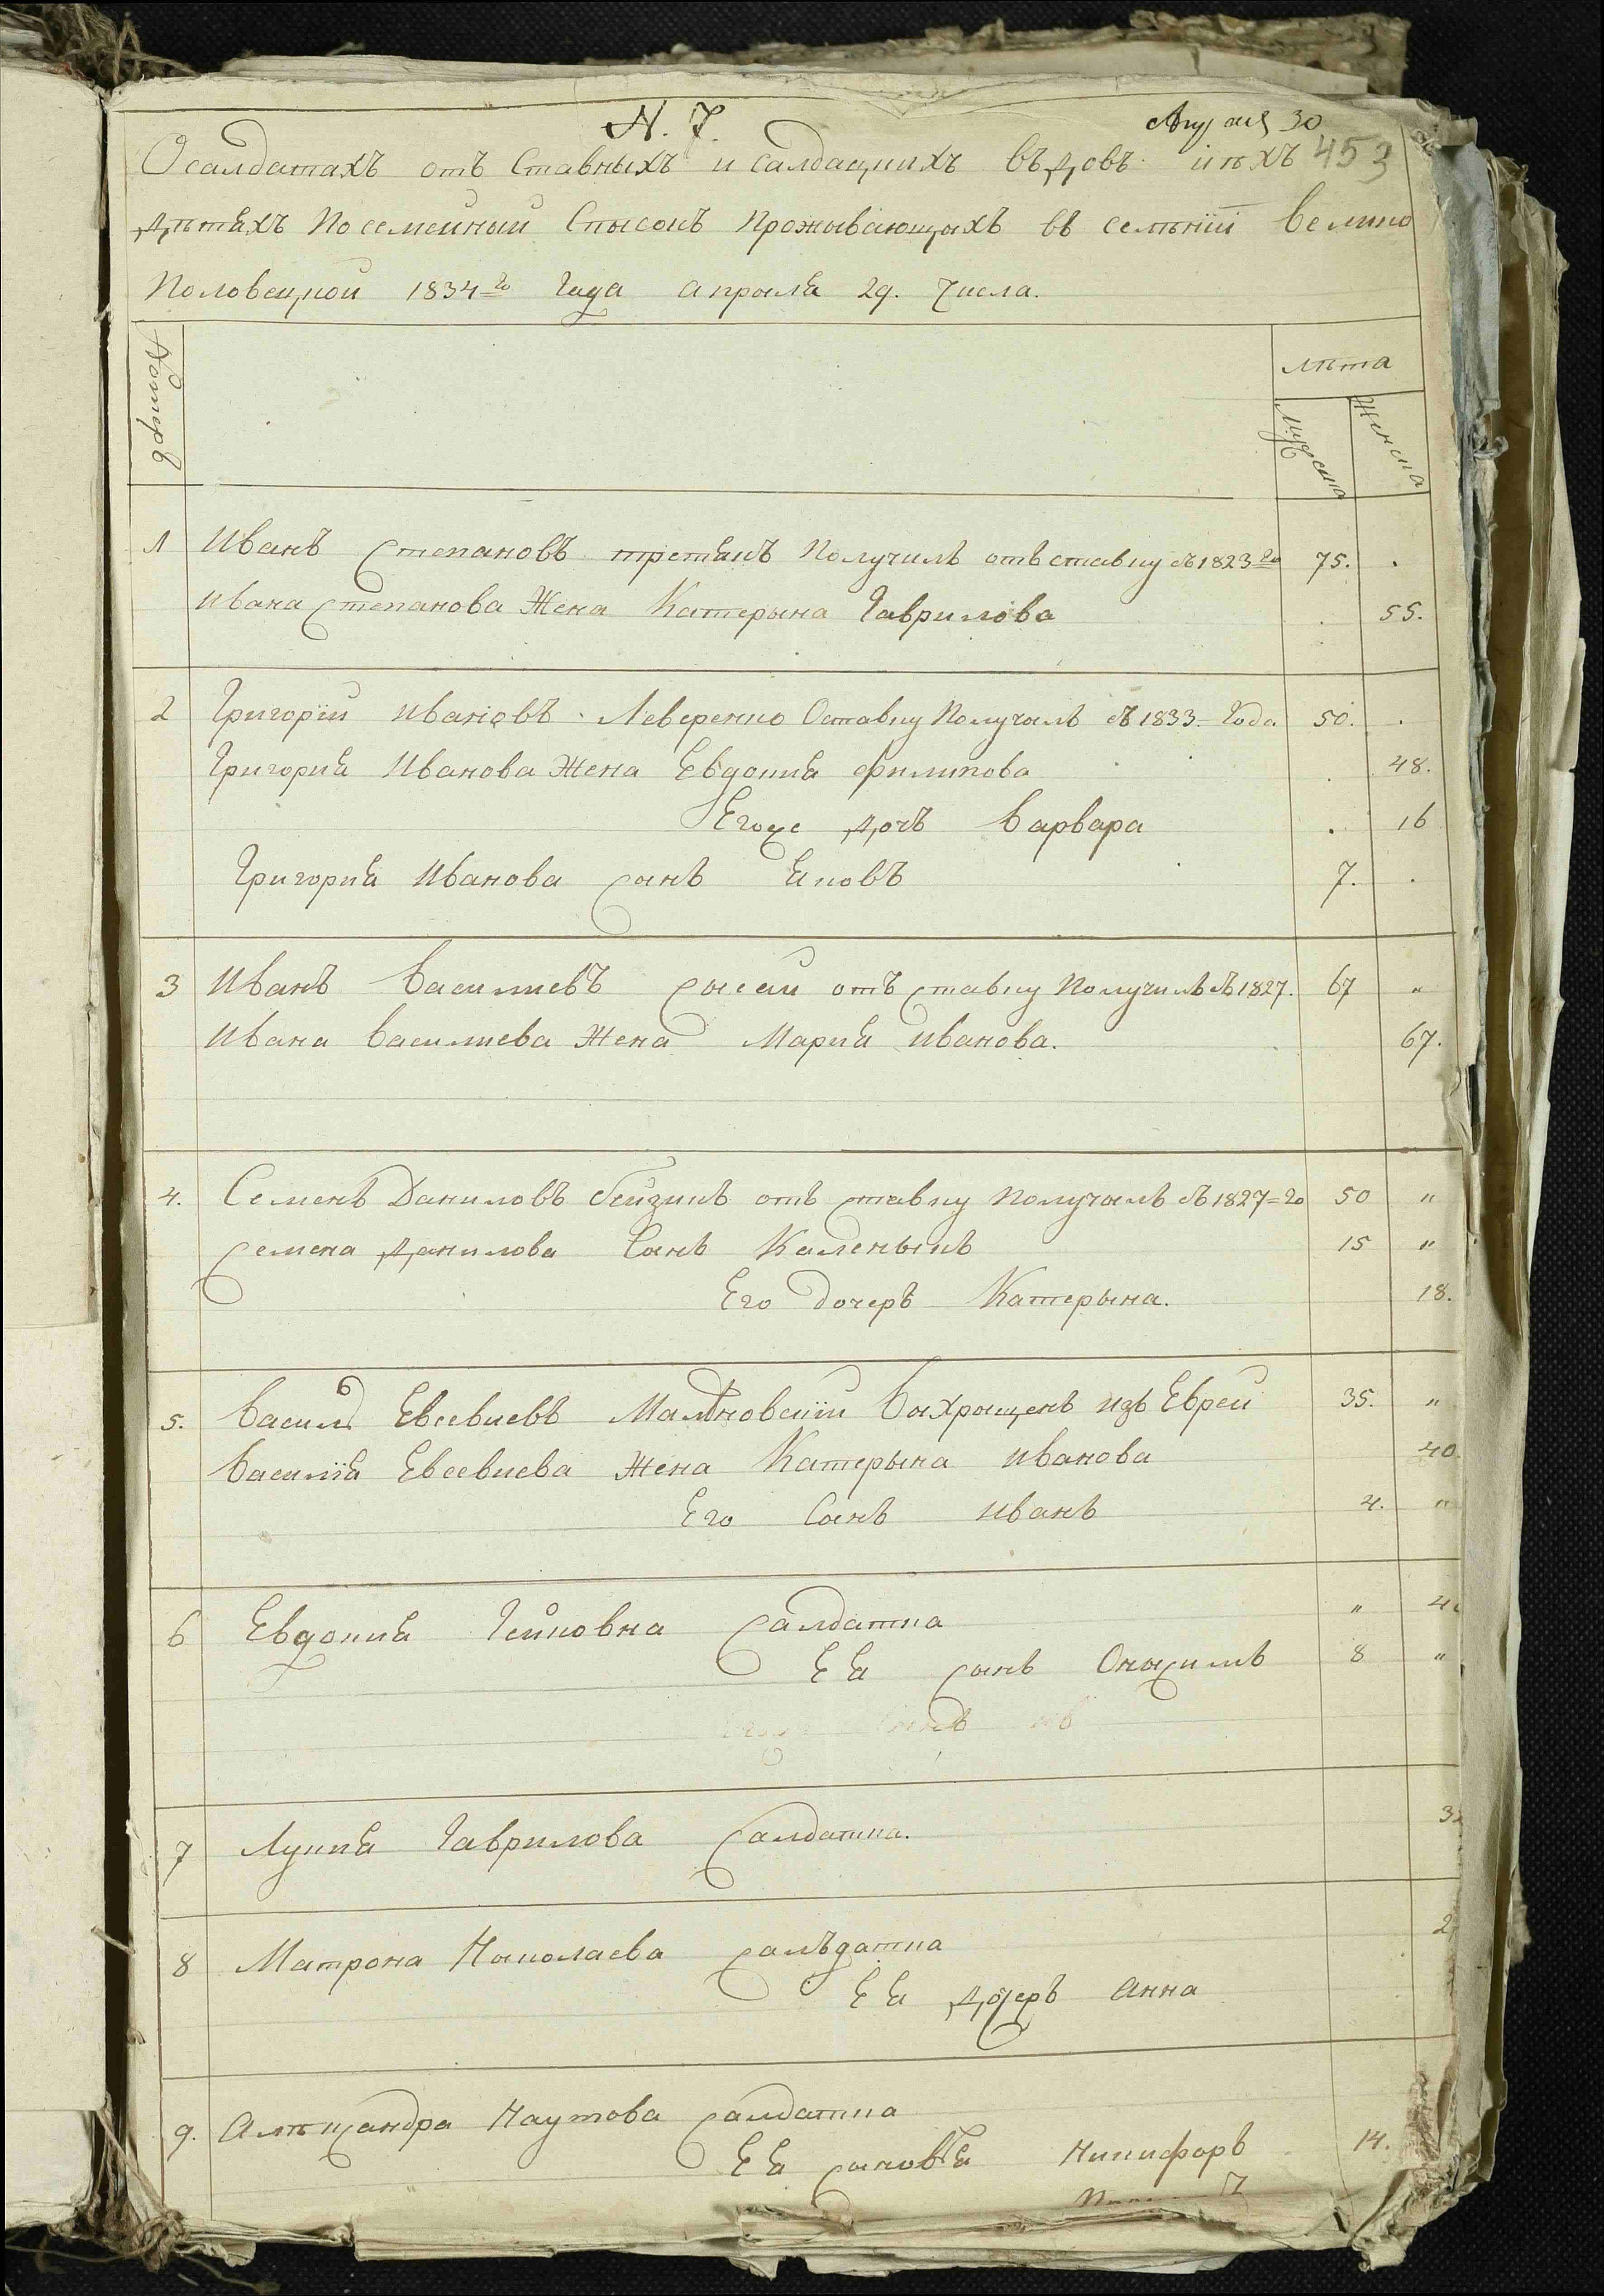 N. 7.
30
453
О салдатахъ отъ Ставныхъ и салдацкихъ въдовъ иихъ
дѣтяхъ Посемейный Спысокъ Прожывающыхъ въ селѣнïи Велико
Половецкой 1834=го Года апрыля 29. Числа.
лѣта
Мужеска
Женска
1 Иванъ Степановъ третякъ Получилъ отъставку въ 1823=го 75. .
Ивана Степанова Жена Катерына Гаврилова . 55.
2 Григорïй Ивановъ Леверенко Оставку Получылъ въ 1833. Года 50. .
Григория Иванова Жена Евдокия Филипова . 48.
Егоже дочъ Варвара . 16
Григория Иванова сынъ Яковъ 7. .
3 Иванъ Василиевъ отъ ставку Получилъ въ 1827. 67 "
Ивана Василиева Жена Мария Иванова. 67.
4. Семенъ Даниловъ отъ ставку Получылъ въ 1827=го 50 "
Семена Данилова Сынъ Каленыкъ 15 "
Его дочеръ Катерына. 18.
5. Василъ Евсевиевъ Выхрыщенъ изъ Еврей 35. "
Василïя Евсевиева Жена Катерына Иванова 40.
Его Сынъ Иванъ 4. "
6 Евдокия Салдатка "
Ея сынъ Оныс­имъ 8 "
7 Лукия Гаврилова Салдатка.
8 Матрона Николаева салъдатка
Ея дочеръ Анна
9. Алѣксандра Наумова Салдатка
Ея сыновъя Никифоръ 14.